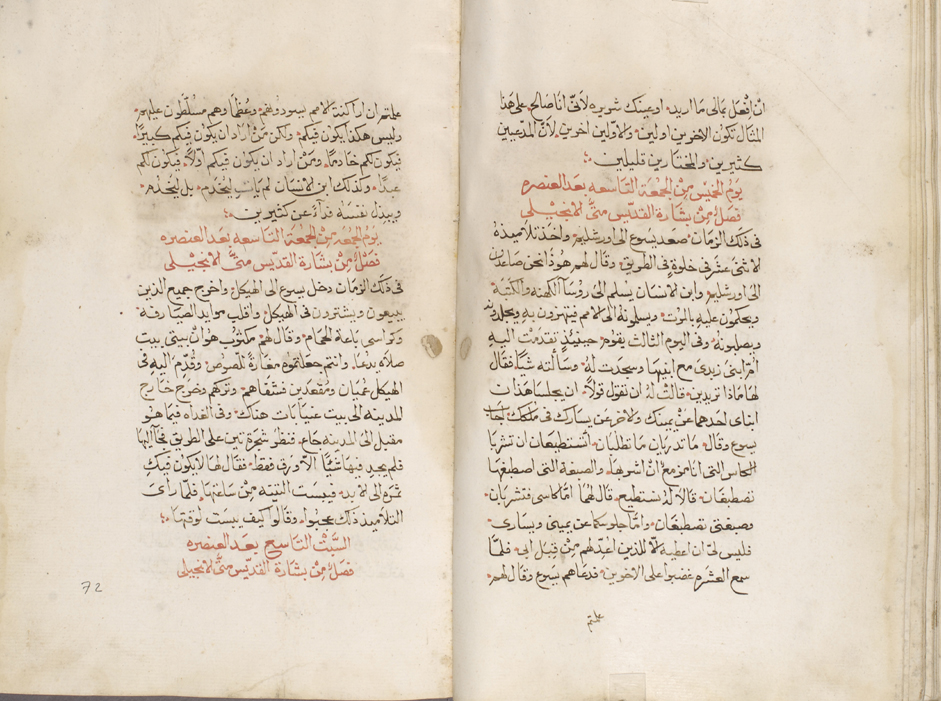 ان افعل بمالي ما اريد او عينك شريره لاني انا صالح على هذا
المثال تكون الاخرين اولين والاولين اخرين لان المدعيين
كثيرين والمختارين قليلين
يوم الخميس من الجمعة التاسعه بعد العنصره
فصل من بشارة القديس متى الانجيلي
في ذلك الزمان صعد يسوع الى اورشليم واخذ تلاميذه
الاثنى عشر في خلوة في الطريق وقال لهم هوذا نحن صاعدين
الى اورشليم وابن الانسان يسلم الى روسا الكهنه والكتبة
ويحكمون عليه بالموت ويسلمونه الى الامم فيهزون به ويجلدونه
ويصلبونه وفى اليوم الثالث يقوم حينيذ تقدمت اليه
ام ابني زبدى مع ابنيها وسجدت له وسالته شيا فقال
لها ماذا تريدين قالت له ان تقول قولا ان يجلسا هذان
ابناى احدهما عن يمينك والاخر عن يسارك في ملكك اجاب
يسوع وقال ما تدريان ما تطلبان اتستطيعان ان تشربا
الكاس التى انا مزمع ان اشربها والصبغة التى اصطبغها
تصطبغان قالا له نستطيع قال لهما اما كاسى فتشربان
وصبغتى تصطبغان واما جلوسكما عن يمينى ويسارى
فليس لى ان اعطيه الا للذين اعد لهم من قبل ابى فلما
سمع العشرة غضبوا على الاخوين فدعاهم يسوع وقال لهم
علمتم
علمتم ان اراكنة الامم يسودونهم وعظما وهم مسلطون عليهم
وليس هكذا يكون فيكم ولكن من اراد ان يكون فيكم كبيرا
فيكون لكم خادما ومن اراد ان يكون فيكم اولا فيكون لكم
عبدا وكذلك ابن الانسان لم يات ليخدم بل ليخدم
ويبذل نفسه فداء عن كثيرين
يوم الجمعه من الجمعة التاسعه بعد العنصره
فصل من بشارة القديس متى الانجيلى
في ذلك الزمان دخل يسوع الى الهيكل واخرج جميع الذين
يبيعون ويشترون في الهيكل واقلب موايد الصيارفة
وكراسى باعة الحمام وقال لهم مكتوب هو ان بيتى بيت
صلاه يدعا وانتم جعلتموه مغارة للصوص وقدم اليه فى
الهيكل عميان ومقعدين فشفاهم وتركهم وخرج خارج
المدينه الى بيت عنيا بات هناك وفى الغداه فيما هو
مقبل الى المدينه جاع فنظر شجرة تين على الطريق فجا اليها
فلم يجد فيها شيا الا ورق فقط فقال لها لا يكون فيك
ثمرة الى الابد فيبست التينه من ساعتها فلما راى
التلاميذ ذلك عجبوا وقالوا كيف يبست لوقتها
السبت التاسع بعد العنصره
فصل من بشارة القديس متى الانجيلى
72